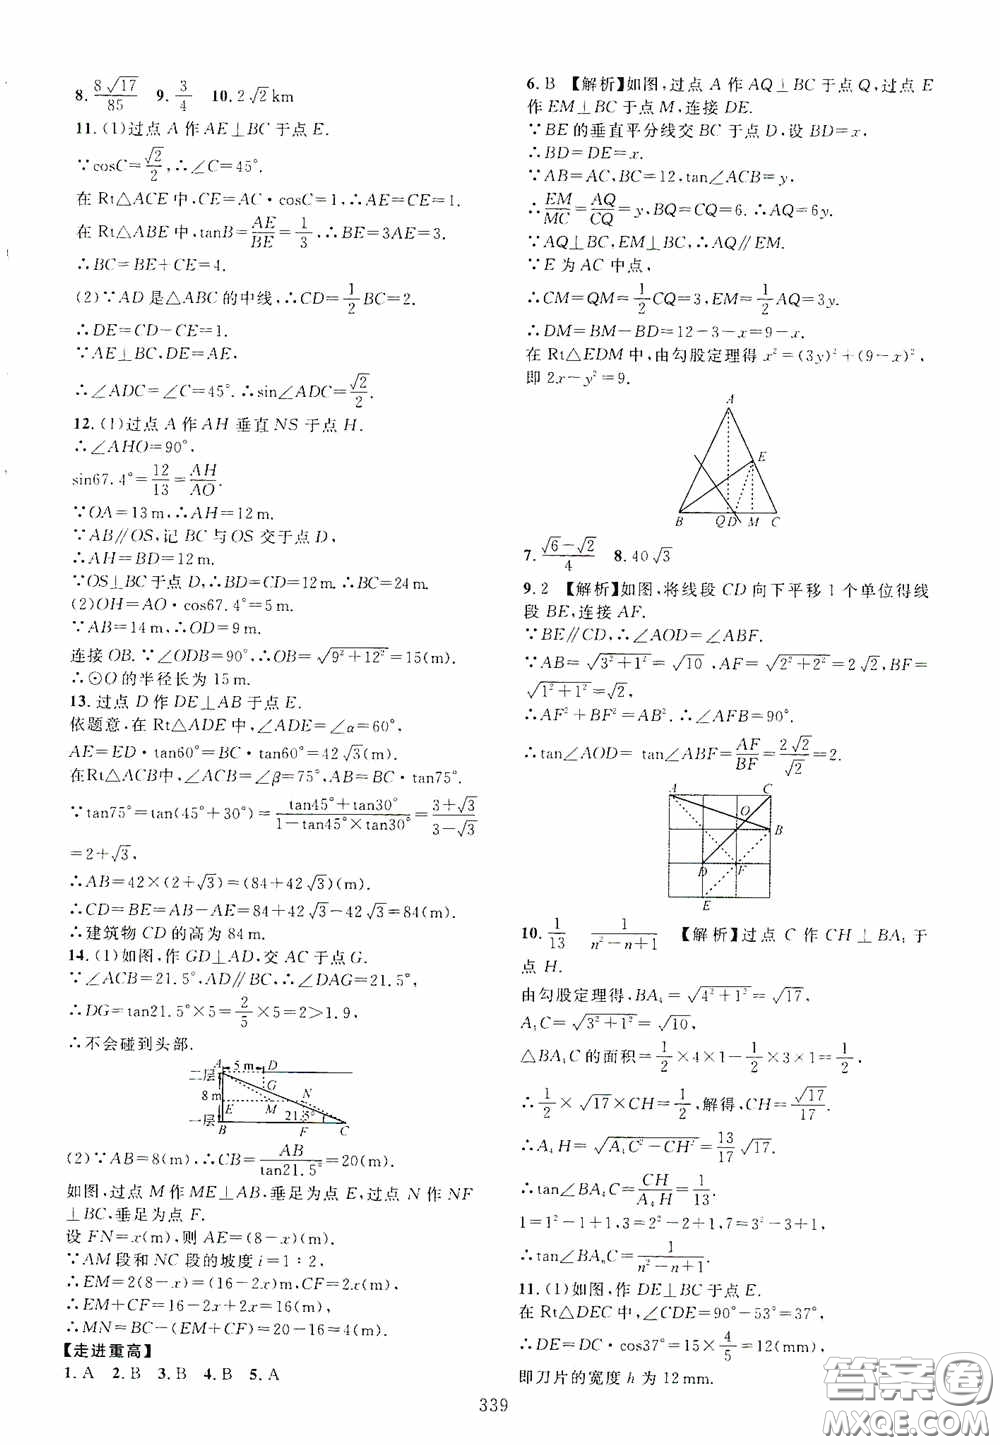 8. 8√17/85  9. 3/4  10. 2√2 km
11. (1)过点 A 作 AE⊥BC 于点 E.
∵cosC=√2/2,∴∠C=45°.
在 Rt△ACE 中,CE=AC·cosC=1,∴AE=CE=1.
在 Rt△ABE 中,tanB=AE/BE=1/3,∴BE=3AE=3.
∴BC=BE+CE=4.
(2)∵AD 是△ABC 的中线,∴CD=1/2BC=2.
∴DE=CD-CE=1.
∵AE⊥BC,DE=AE,
∴∠ADC=∠C=45°.∴sin∠ADC=√2/2.
12. (1)过点 A 作 AH 垂直 NS 于点 H.
∴∠AHO=90°.
sin67.4°=12/13=AH/AO.
∵OA=13 m,∴AH=12 m.
∵AB∥OS,记 BC 与 OS 交于点 D,
∴AH=BD=12 m.
∵OS⊥BC于点 D,∴BD=CD=12 m.∴BC=24 m.
(2)OH=AO·cos67.4°=5 m.
∵AB=14 m,∴OD=9 m.
连接 OB.∵∠ODB=90°,∴OB=√9²+12²=15(m).
∴⊙O 的半径长为 15 m.
13. 过点 D 作 DE⊥AB 于点 E.
依题意,在 Rt△ADE 中,∠ADE=∠α=60°,
AE=ED·tan60°=BC·tan60°=42√3(m).
在Rt△ACB中,∠ACB=∠β=75°,AB=BC·tan75°.
∵tan75°=tan(45°+30°)=tan45°+tan30°/1-tan45°×tan30°=3+√3/3-√3
=2+√3,
∴AB=42×(2+√3)=(84+42√3)(m).
∴CD=BE=AB-AE=84+42√3-42√3=84(m).
∴建筑物 CD 的高为 84 m.
14. (1)如图,作 GD⊥AD,交 AC于点G.
∵∠ACB=21.5°,AD∥BC,∴∠DAG=21.5°,
∴DG=tan21.5°×5=2/5×5=2>1.9,
∴不会碰到头部.
A 5 m D
二层
G
8 m E M N
21.5°
一层 B F C
(2)∵AB=8(m),∴CB=AB/tan21.5°=20(m).
如图,过点 M 作 ME⊥AB,垂足为点 E,过点 N 作 NF
⊥BC,垂足为点 F.
设 FN=x(m),则 AE=(8-x)(m).
∵AM 段和 NC 段的坡度 i=1∶2,
∴EM=2(8-x)=(16-2x)m,CF=2x(m).
∴EM+CF=16-2x+2x=16(m),
∴MN=BC-(EM+CF)=20-16=4(m).
【走进重高】
1. A  2. B  3. B  4. B  5. A
6. B 【解析】如图,过点 A 作 AQ⊥BC 于点 Q,过点 E
作 EM⊥BC 于点 M,连接 DE.
∵BE 的垂直平分线交 BC 于点 D,设 BD=x,
∴BD=DE=x.
∵AB=AC,BC=12,tan∠ACB=y,
∴EM/MC=AQ/CQ=y,BQ=CQ=6.∴AQ=6y.
∵AQ⊥BC,EM⊥BC,∴AQ∥EM.
∵E 为 AC 中点,
∴CM=QM=1/2CQ=3,EM=1/2AQ=3y.
∴DM=BM-BD=12-3-x=9-x.
在 Rt△EDM 中,由勾股定理得 x²=(3y)²+(9-x)²,
即 2x-y²=9.
A
E
B Q D M C
7. √6-√2/4  8. 40√3
9. 2 【解析】如图,将线段 CD 向下平移 1 个单位得线
段 BE,连接 AF.
∵BE∥CD,∴∠AOD=∠ABF.
∵AB=√3²+1²=√10,AF=√2²+2²=2√2,BF=
√1²+1²=√2,
∴AF²+BF²=AB².∴∠AFB=90°.
∴tan∠AOD=tan∠ABF=AF/BF=2√2/√2=2.
A C
O
B
D F
E
10. 1/13  1/n²-n+1 【解析】过点 C 作 CH⊥BA₄ 于
点 H.
由勾股定理得,BA₄=√4²+1²=√17,
A₄C=√3²+1²=√10,
△BA₄C 的面积=1/2×4×1-1/2×3×1=1/2,
∴1/2×√17×CH=1/2,解得,CH=√17/17.
∴A₄H=√A₄C²-CH²=13/17√17.
∴tan∠BA₄C=CH/A₄H=1/13.
1=1²-1+1,3=2²-2+1,7=3²-3+1,
∴tan∠BAₙC=1/n²-n+1.
11. (1)如图,作 DE⊥BC 于点 E.
在 Rt△DEC 中,∠CDE=90°-53°=37°,
∴DE=DC·cos37°=15×4/5=12(mm),
即刀片的宽度 h 为 12 mm.
339
答案圈
MXQE.COM